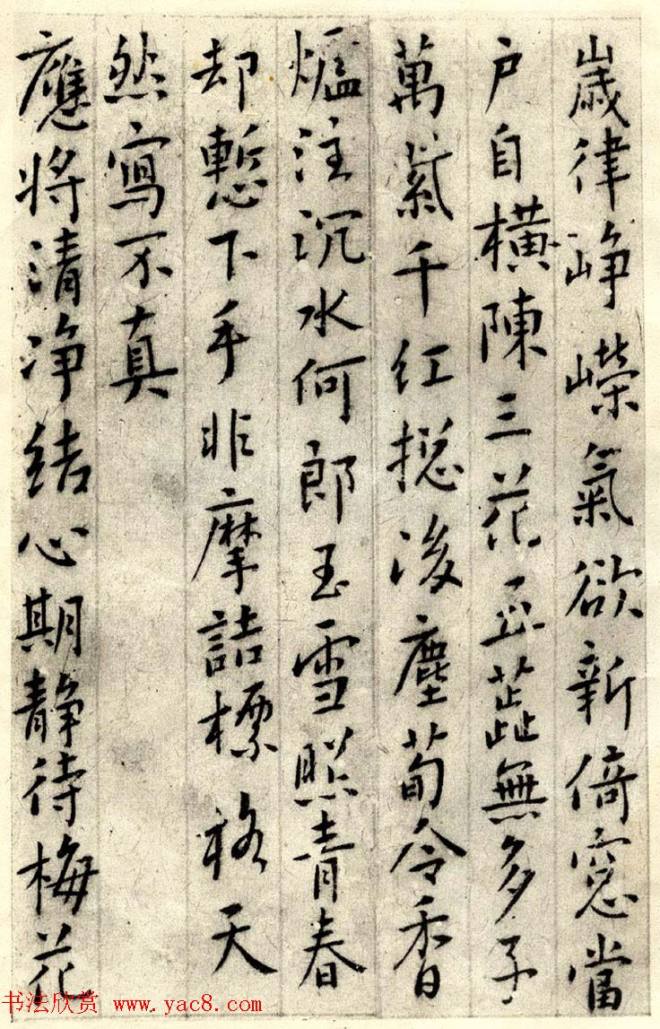 歲律峥嶸氣欲新倚窓當
户自橫陳三花五蕋無多子
萬紫千红搃後塵荀令香
爐注沉水何郎玉雪照青春
却慙下手非摩詰標格天
然寫不真
應将清净結心期静待梅花
书法欣赏 www.yac8.com